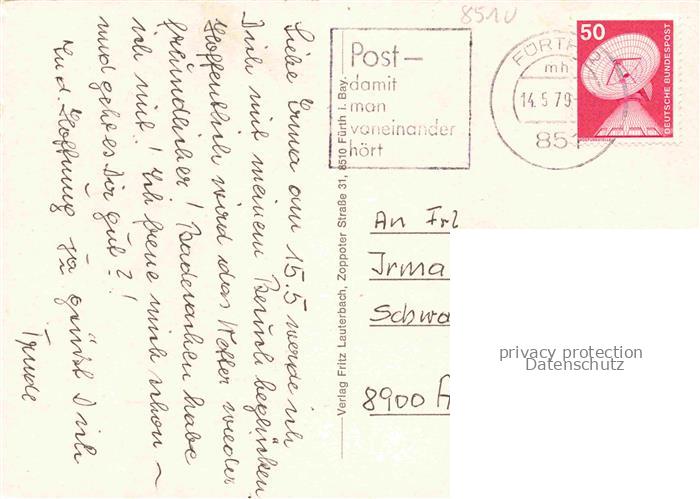 Liebe Erma am 15.5 werde ich
Dich mit meinem Besuch beglücken.
Hoffentlich wird das Wetter wieder
freundlicher! Badesachen habe
ich mit! Ich freue mich schon ~
und geht es Dir gut?!
Hoffnung grüßt Dich
Trude
Verlag Fritz Lauterbach, Zoppoter Straße 31, 8510 Fürth i. Bay.
8510
Post-
damit
man
voneinander
hört
FÜRTH
mh
14.5.79
851
50
DEUTSCHE BUNDESPOST
An Frl
Irma
Schwa
8900 A
privacy protection
Datenschutz